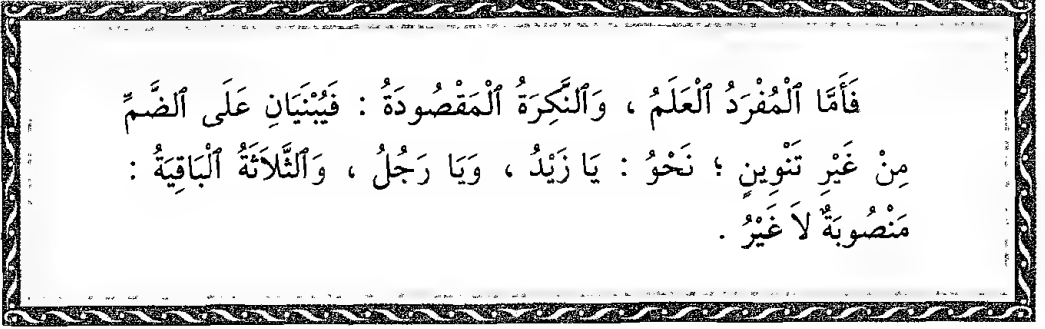 فَأَمَّا ٱلْمُفْرَدُ ٱلْعَلَمُ ، وَٱلنَّكِرَةُ ٱلْمَقْصُودَةُ : فَيُبْنَيَانِ عَلَى ٱلضَّمِّ
مِنْ غَيْرِ تَنْوِينٍ ؛ نَحْوُ : يَا زَيْدُ ، وَيَا رَجُلُ ، وَٱلثَّلاَثَةُ ٱلْبَاقِيَةُ :
مَنْصُوبَةٌ لاَ غَيْرُ .